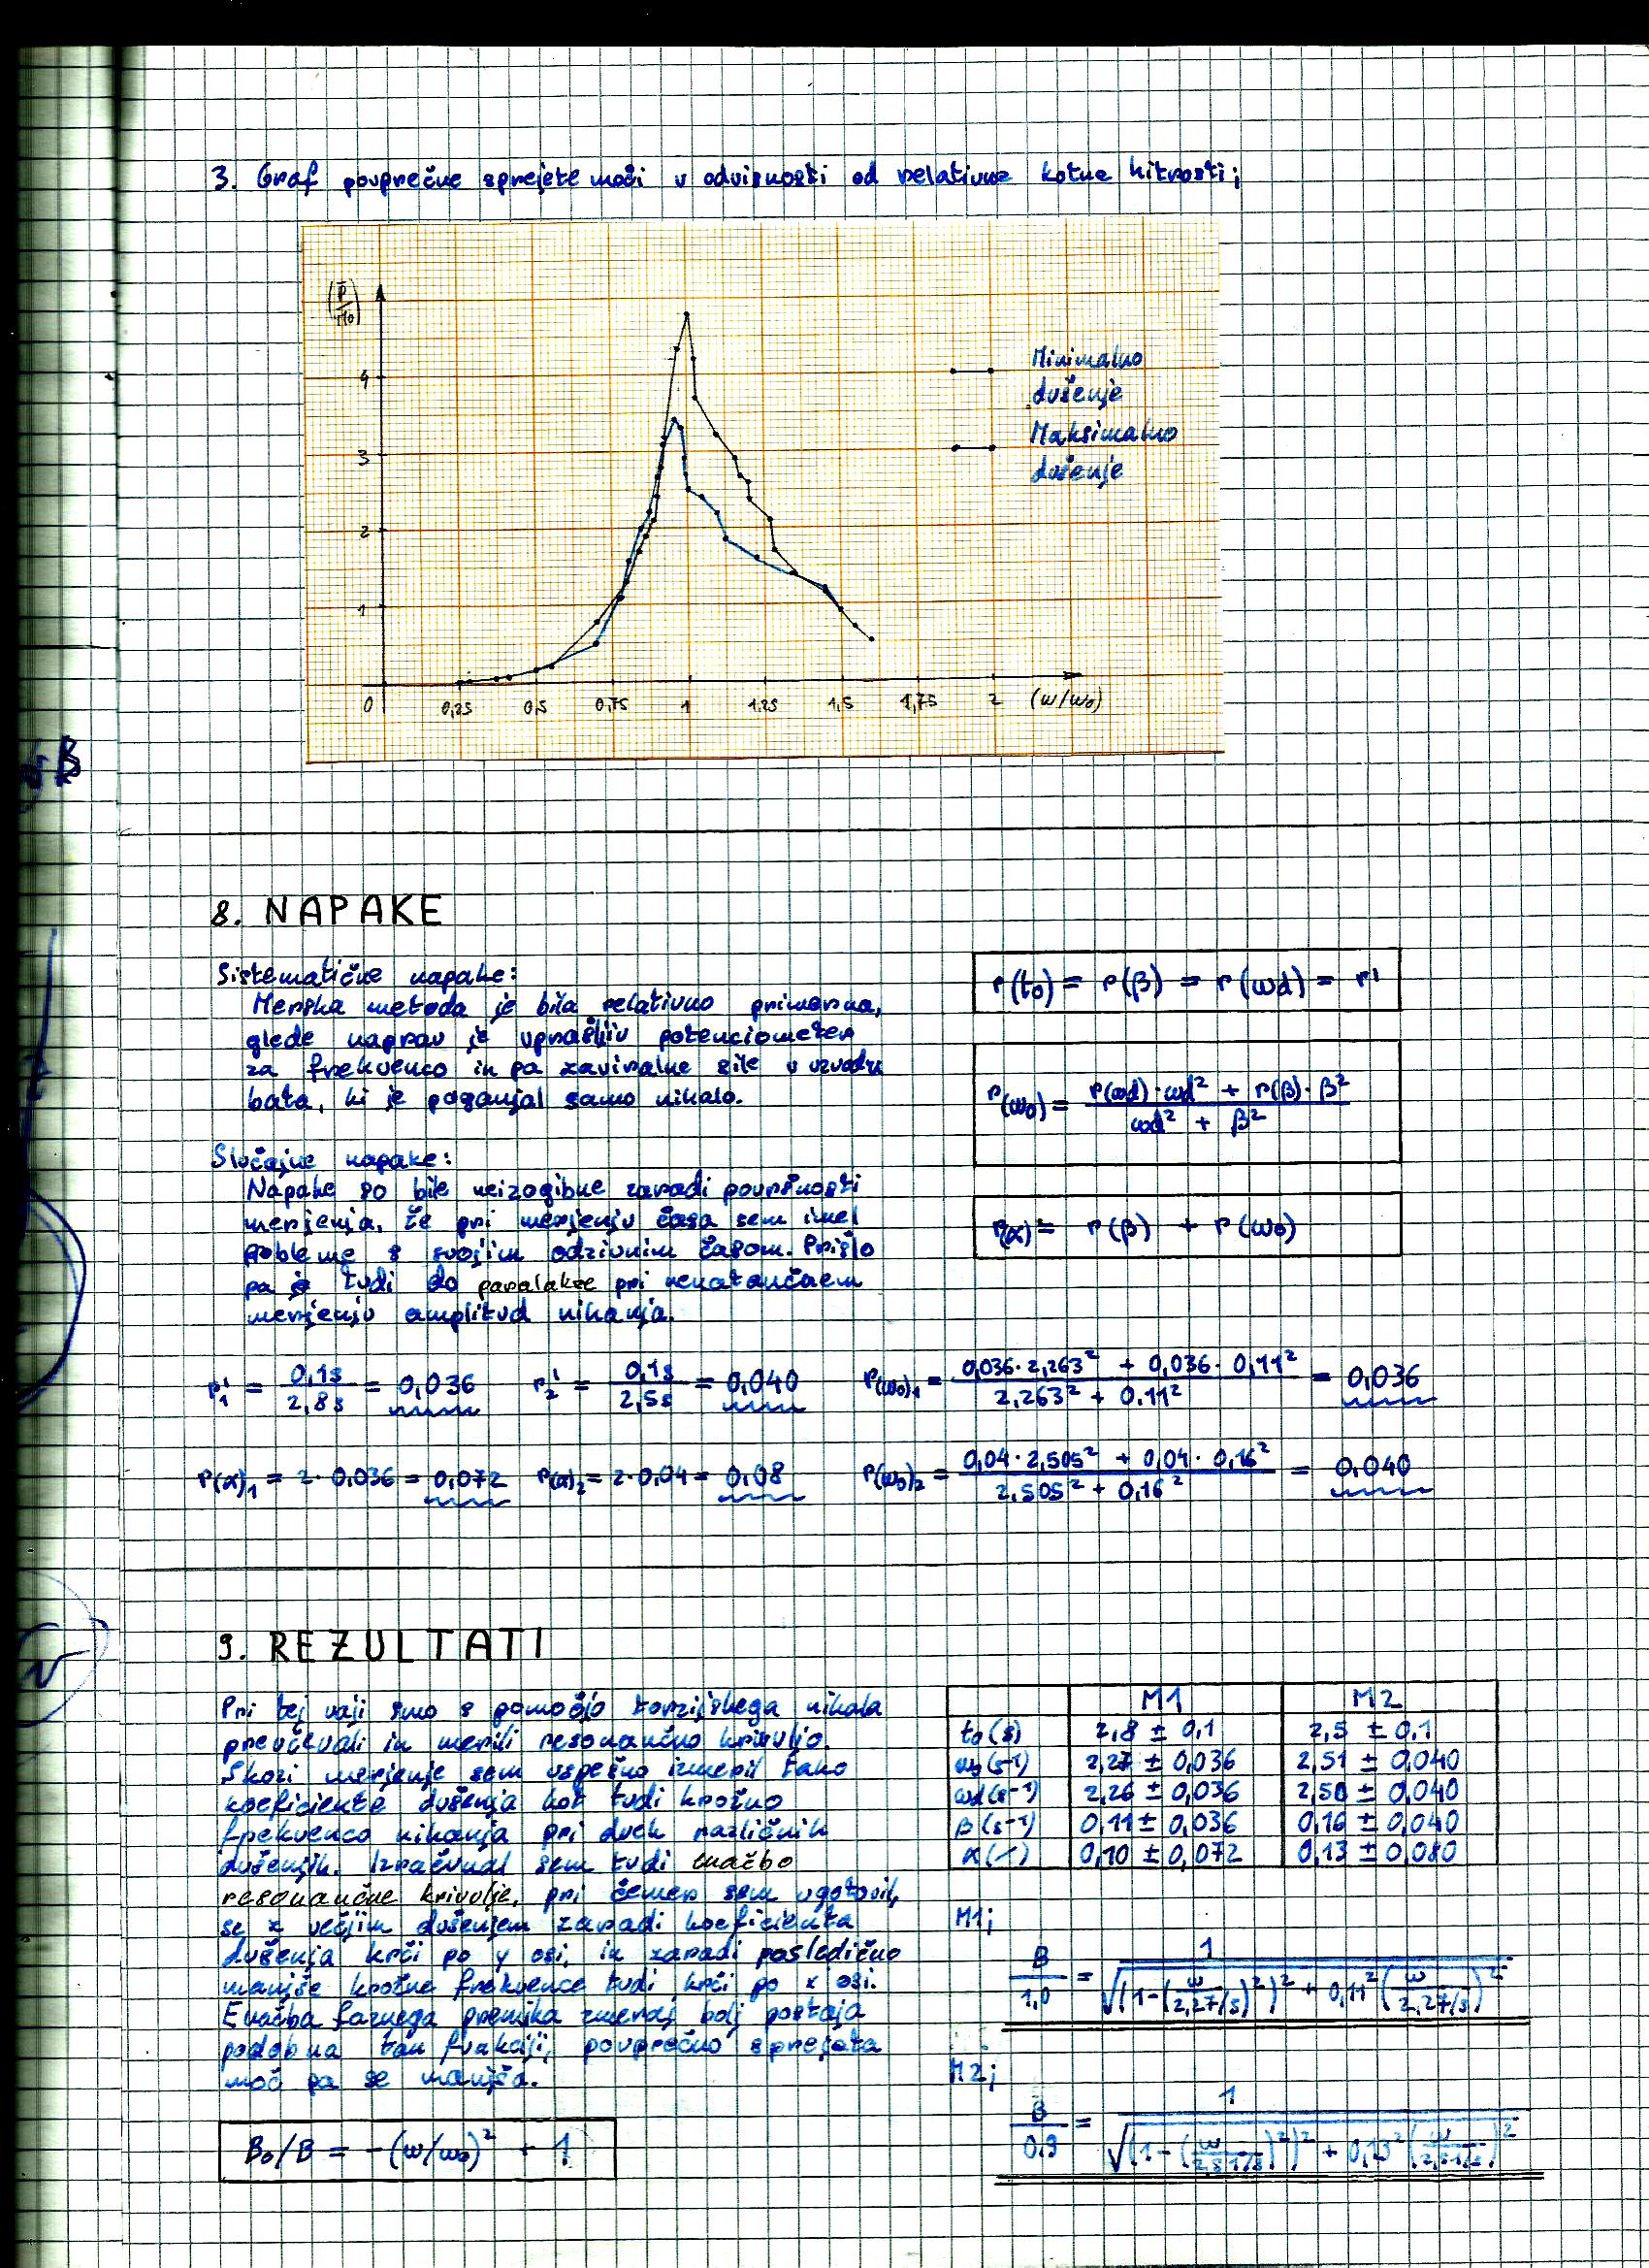 3. Graf povprečne sprejete moči v odvisnosti od relativne kotne hitrosti;
4
3
2
1
0 0,25 0,5 0,75 1 1,25 1,5 1,75 2 (ω/ω₀)
Minimalno
dušenje
Maksimalno
dušenje
8. NAPAKE
Sistematične napake:
Merska metoda je bila relativno primerna,
glede naprav je vprašljiv potenciometer
za frekvenco in pa zaviralne sile v vzvodu
bata, ki je poganjal samo nihalo.
Slučajne napake:
Napake so bile neizogibne zaradi površnosti
merjenja, že pri merjenju časa sem imel
probleme s svojim odzivnim časom. Prišlo
pa je tudi do paralakse pri nenatančnem
merjenju amplitud nihanja.
r(t₀) = r(β) = r(ωd) = r'
r(ω₀) = (r(ωd)·ωd² + r(β)·β²) / (ωd² + β²)
r(α) = r(β) + r(ω₀)
r₁' = 0,1s / 2,8s = 0,036 r₂' = 0,1s / 2,5s = 0,040 r(ω₀)₁ = (0,036·2,263² + 0,036·0,11²) / (2,263² + 0,11²) = 0,036
r(α)₁ = 2·0,036 = 0,072 r(α)₂ = 2·0,04 = 0,08 r(ω₀)₂ = (0,04·2,505² + 0,04·0,16²) / (2,505² + 0,16²) = 0,040
9. REZULTATI
Pri tej vaji smo s pomočjo torzijskega nihala
preučevali in merili resonančno krivuljo.
Skozi merjenje sem uspešno izmeril tako
koeficiente dušenja kot tudi krožno
frekvenco nihanja pri dveh različnih
dušenjih. Izračunal sem tudi enačbo
resonančne krivulje, pri čemer sem ugotovil,
se z večjim dušenjem zaradi koeficienta
dušenja krči po y osi, in zaradi posledično
manjše krožne frekvence tudi krči po x osi.
Enačba faznega premika zmeraj bolj postaja
podobna tan funkciji, povprečno sprejeta
moč pa se manjša.
B₀/B = -(ω/ω₀)² + 1
M1 M2
t₀(s) 2,8 ± 0,1 2,5 ± 0,1
ω₀(s⁻¹) 2,27 ± 0,036 2,51 ± 0,040
ωd(s⁻¹) 2,26 ± 0,036 2,50 ± 0,040
β(s⁻¹) 0,11 ± 0,036 0,16 ± 0,040
α(1) 0,10 ± 0,072 0,13 ± 0,080
M1;
B/1,0 = 1 / √((1-(ω/2,27/s)²)² + 0,11²(ω/2,27/s)²)
M2;
B/0,9 = 1 / √((1-(ω/2,51/s)²)² + 0,13²(ω/2,51/s)²)